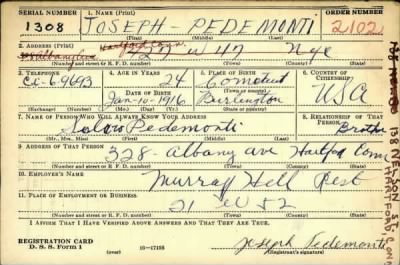 SERIAL NUMBER 1. NAME (Print) ORDER NUMBER
1308 JOSEPH - PEDEMONTI 2102
(First) (Middle) (Last)
2. ADDRESS (Print) Hartford Conn
227 W 47 Nyc
(Number and street or R. F. D. number) (Town) (County) (State)
3. TELEPHONE 4. AGE IN YEARS 5. PLACE OF BIRTH 6. COUNTRY OF CITIZENSHIP
Ci-6-9693 24
DATE OF BIRTH
Jan-10-1916 Burlington USA
(Exchange) (Number) (Mo.) (Day) (Yr.) (Town or county) (State or country)
7. NAME OF PERSON WHO WILL ALWAYS KNOW YOUR ADDRESS 8. RELATIONSHIP OF THAT PERSON
Pedemonti Brother
(Mr., Mrs., Miss) (First) (Middle) (Last)
9. ADDRESS OF THAT PERSON
328 Albany ave Hartford Conn
(Number and street or R. F. D. number) (Town) (County) (State)
10. EMPLOYER'S NAME
Murray Hill Rest
11. PLACE OF EMPLOYMENT OR BUSINESS
21 W 52
(Number and street or R. F. D. number) (Town) (County) (State)
I AFFIRM THAT I HAVE VERIFIED ABOVE ANSWERS AND THAT THEY ARE TRUE.
REGISTRATION CARD
D. S. S. Form 1 16-17105 Joseph Pedemonti
(Registrant's signature)
138 NELSON ST.
HARTFORD, CONN